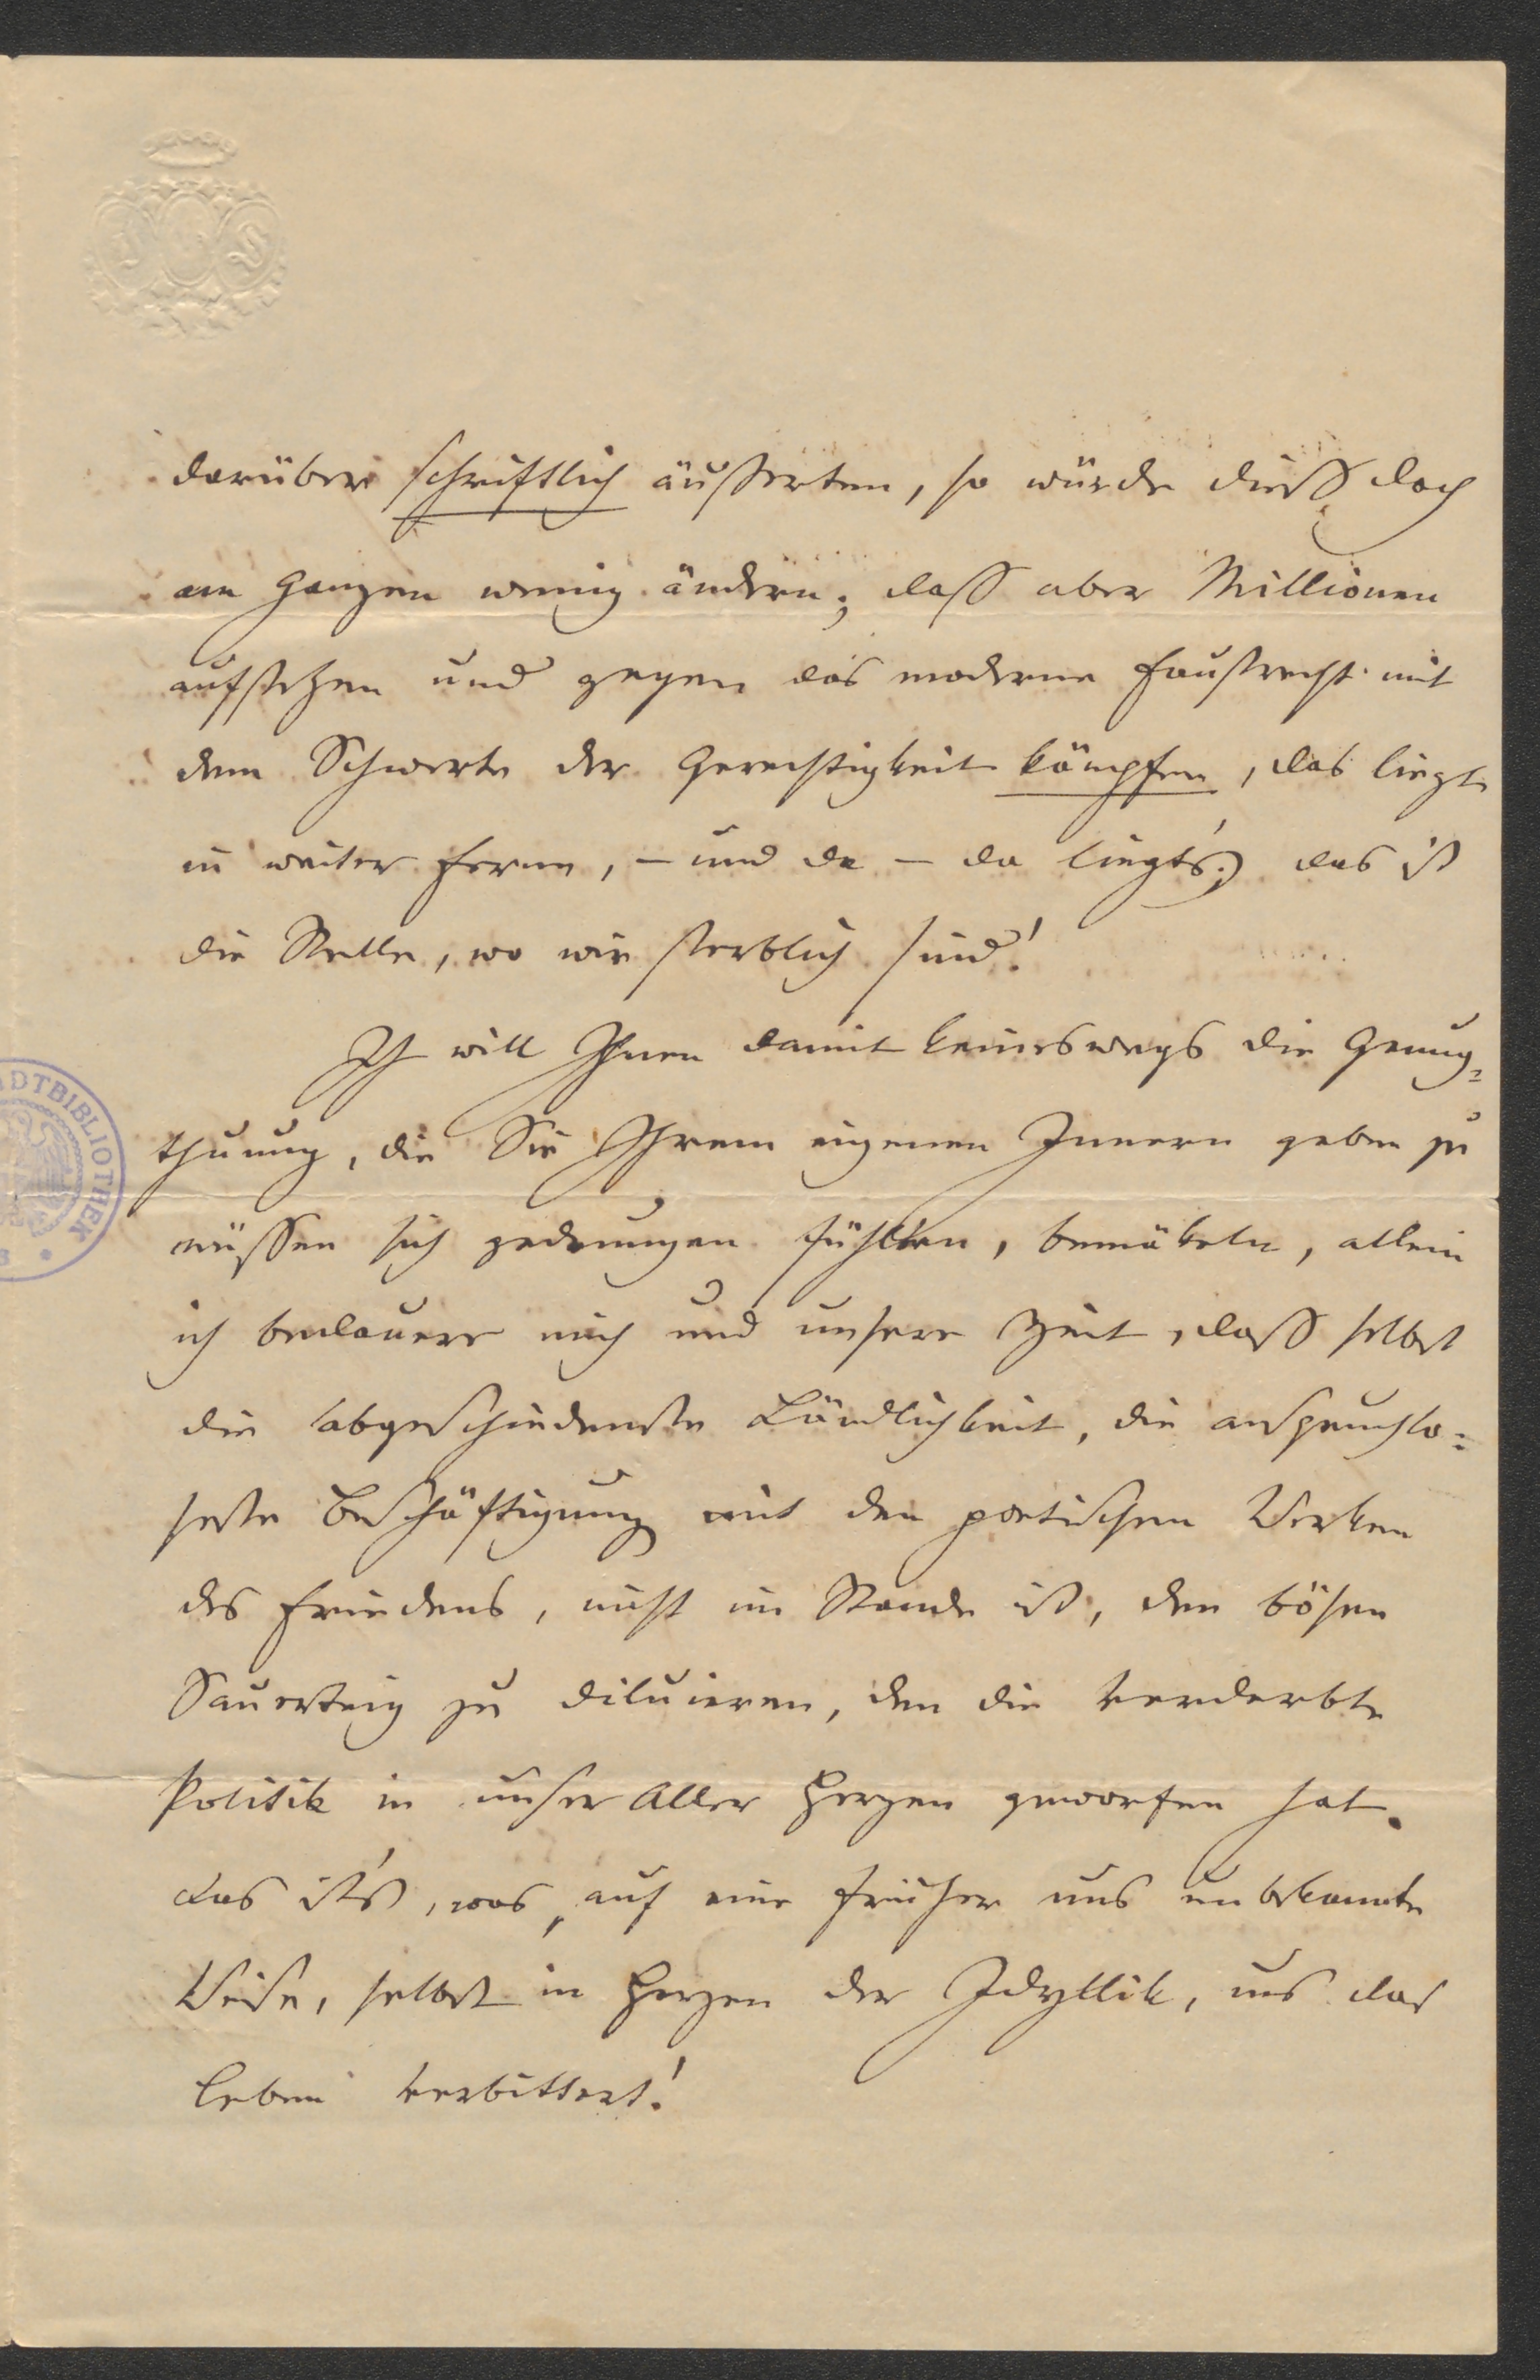 darüber schriftlich äußerten, so würde dieß doch
am Ganzen wenig ändern; daß aber Millionen
aufstehen und gegen das moderne Faustrecht mit
dem Schwerte der Gerechtigkeit kämpfen, das liegt
in weiter Ferne, – und da – da liegt's; das ist
die Stelle, wo wir sterblich sind!
Ich will Ihnen damit keineswegs die Genug=
thuung, die Sie Ihrem eigenen Innern geben zu
müssen sich gedrungen fühlten, bemäkeln, allein
ich bedauere mich und unsere Zeit, daß selbst
die abgeschiedenste Ländlichkeit, die anspruchlo=
seste Beschäftigung mit den poetischen Werken
des Friedens, nicht im Stande ist, den bösen
Sauerteig zu diluieren, den die verderbte
Politik in unser Aller Herzen geworfen hat.
Das ist's, was, auf eine früher uns unbekannte
Weise, selbst in Herzen der Idyllik, uns das
Leben verbittert!
DTBIBLIOTHEK